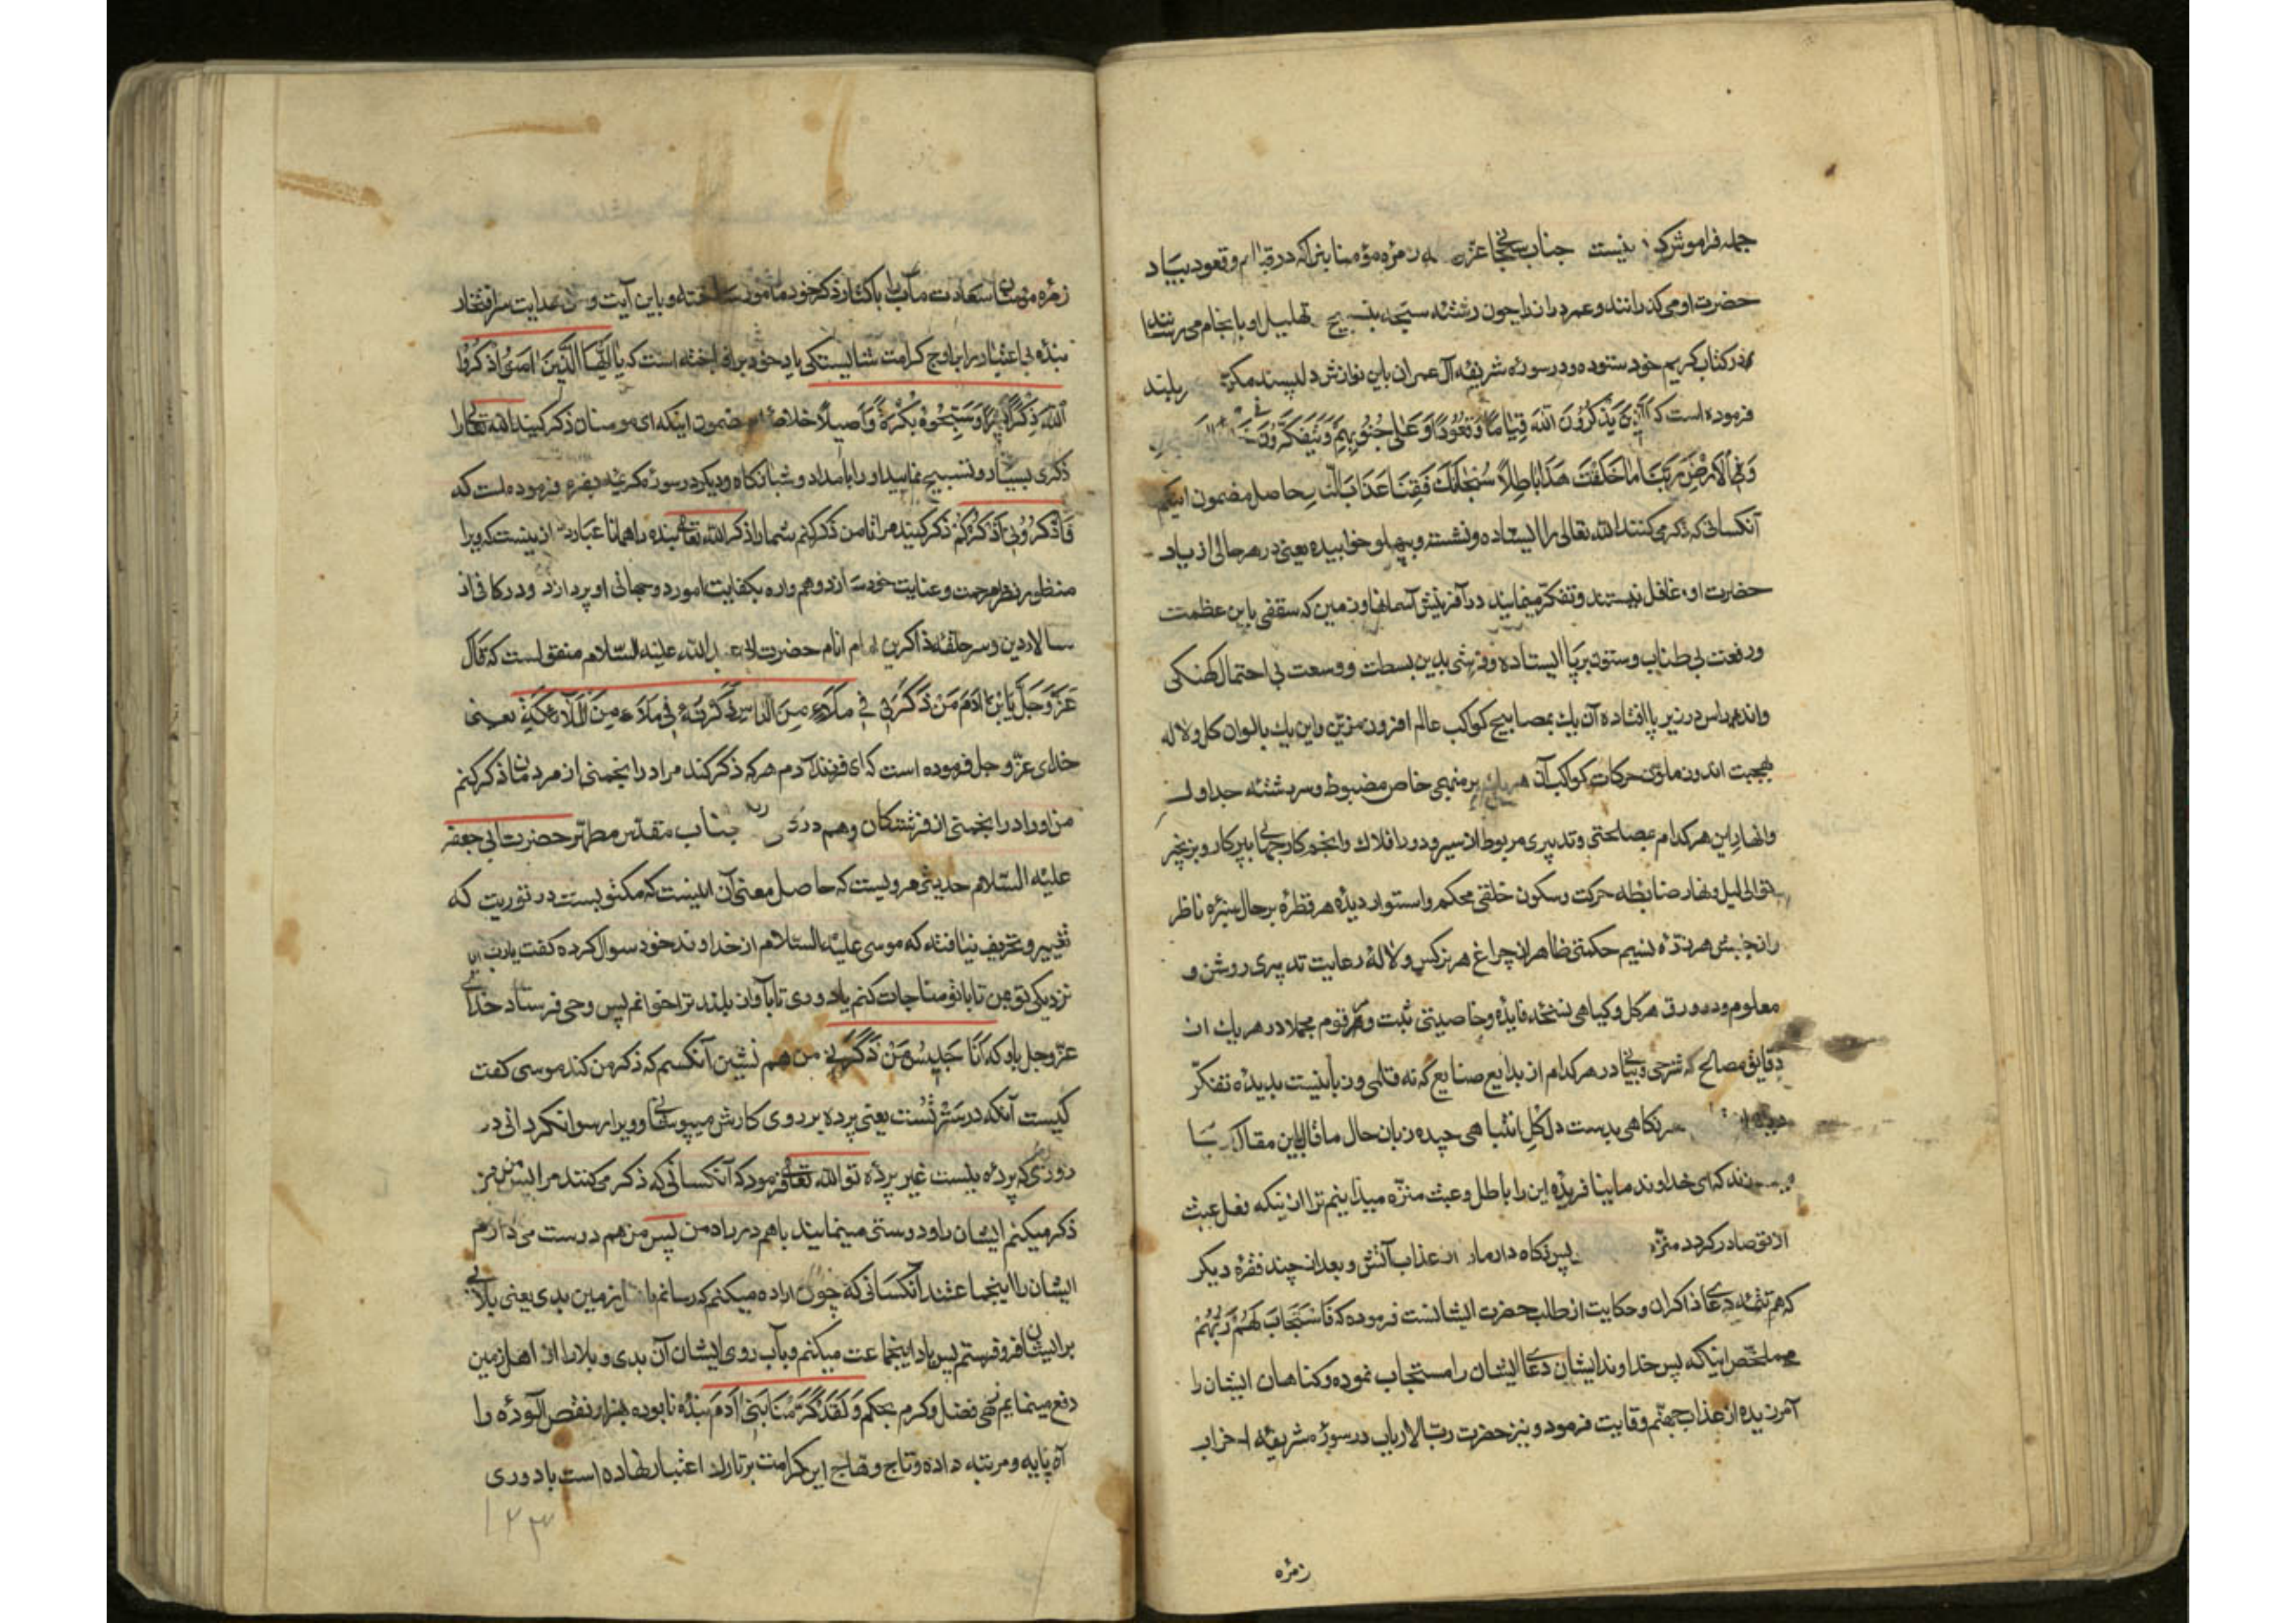 جمله فراموش کرد نیست جناب سبحانی عزه زمره مؤمنا بنرا که در قیام و قعود بیاد
حضرت او می‌کذرانند و عمر را چون رشته سبحه بتسبیح تهلیل او بانجام می‌رسانند
در کتاب کریم خود ستوده و در سوره شریفه آل عمران باین نوازش دلپسند سربلند
فرموده است که الَّذِينَ يَذْكُرُونَ اللهَ قِيَامًا وَقُعُودًا وَعَلَى جُنُوبِهِمْ وَيَتَفَكَّرُونَ فِي خَلْقِ
وَالْاَرْضِ رَبَّنَا مَا خَلَقْتَ هَذَا بَاطِلًا سُبْحَانَكَ فَقِنَا عَذَابَ النَّارِ حاصل مضمون اینکه
آنکسانی که ذکر می‌کنند الله تعالی را ایستاده و نشسته و بپهلو خوابیده یعنی در هر حالی از یاد
حضرت او غافل نیستند و تفکر مینمایند در آفرینش آسمانها و زمین که سقفی باین عظمت
و رفعت بی طناب و ستون برپا ایستاده و فرشی بدین بسطت و وسعت بی احتمال کهنکی
و اندراس در زیر پا افتاده آن یك بمصابیح کواکب عالم افروز مزین و این یك بالوان کل و لاله
بهجت اندوز ملون حرکات کواکب آن هر یك بر منهجی خاص مضبوط و سررشته جداول
و انهار این هر کدام بمصلحتی و تدبیری مربوط از سیر و دور افلاك و انجم کار جهانی
بتوالی لیل و نهار ضابطه حرکت و سکون خلقی محکم و استوار دیده هر قطره بر حال سبزه ناظر
و از جنبش هر نسیم حکمتی ظاهر از چراغ هر نرکس و لاله رعایت تدبیری روشن و
معلوم و در ورق هر کل و کیاهی نسخه فایده و خاصیتی ثبت و مرقوم مجملا در هر یك از
دقایق مصالح که شرحی و بیانی در هر کدام از بدایع صنایع که نه قلمی و زبانیست بدیده تفکر
نکاهی بدست دل کل انتباهی چیده زبان حال ما قال باین مقال
که ای خداوند ما نیافریده این را باطل و عبث منزه میدانیم ترا از اینکه فعل عبث
از تو صادر کردد منزه پس نکاه دار ما را از عذاب آتش و بعد از چند فقره دیکر
که هم تتمه دعای ذاکران و حکایت از طلب حضرت ایشانست فرموده که فَاسْتَجَابَ لَهُمْ رَبُّهُمْ
ملخص اینکه پس خداوند ایشان دعای ایشان را مستجاب نموده و کناهان ایشان را
آمرزیده از عذاب جهنم وقایت فرمود و نیز حضرت رب الارباب در سوره شریفه احزاب
زمره
زمره مؤمنان سعادت مآب را باکثار ذکر خود مأمور ساخته و باین آیت هدایت سرافتخار
بنده بی اعتبار را باوج کرامت شایستکی یاد خود برافراخته است که يَا اَيُّهَا الَّذِينَ اٰمَنُوا اذْكُرُوا
اللهَ ذِكْرًا كَثِيرًا وَسَبِّحُوهُ بُكْرَةً وَاَصِيلًا خلاصه مضمون اینکه ای مومنان ذکر کنید الله تعالی را
ذکری بسیار و تسبیح نمایید او را بامداد و شبانکاه و دیکر در سوره کریمه بقره فرموده است که
فَاذْكُرُونِي اَذْكُرْكُمْ ذکر کنید مرا تا من ذکر کنم شما را ذکر الله تعالی بنده را همانا عبارت از اینست که ویرا
منظور نظر مرحمت و عنایت خود سازد و همواره بکفایت امور دوجهانی او پردازد و در کافی از
سالار دین و سر حلقه ذاکرین امام انام حضرت ابی عبدالله علیه السلام منقول است که قال
عَزَّ وَجَلَّ يَابْنَ اٰدَمَ مَنْ ذَكَرَنِي فِي مَلَاءٍ مِنَ النَّاسِ ذَكَرْتُهُ فِي مَلَاءٍ مِنَ الْمَلَائِكَةِ یعنی
خدای عز و جل فرموده است که ای فرزند آدم هر که ذکر کند مرا در انجمنی از مردمان ذکر کنم
من او را در انجمنی از فرشتکان و هم در جناب مقدس مطهر حضرت ابی جعفر
علیه السلام حدیثی مرویست که حاصل معنی آن اینست که مکتوبست در توریت که
تغییر و تحریف نیافته که موسی علیه السلام از خداوند خود سوال کرده کفت یا رب آیا
نزدیکی تو بمن تا با تو مناجات کنم یا دوری تا بآواز بلند ترا خوانم پس وحی فرستاد خدای
عز و جل باو که اَنَا جَلِيسُ مَنْ ذَكَرَنِي من هم نشین آنکسم که ذکر من کند موسی کفت
کیست آنکه در ستر تست یعنی پرده بر روی کارش میپوشانی و ویرا رسوا نکردانی در
روزی که پرده نیست غیر پرده تو الله تعالی فرمود که آنکسانی که ذکر می‌کنند مرا پس من نیز
ذکر میکنم ایشان را و دوستی مینمایند با هم در یاد من پس من هم دوست می‌دارم
ایشان را اینجماعتند آنکسانی که چون اراده میکنم که رسانم باهل زمین بدی یعنی بلائی
بر ایشان فرو فرستم پس یاد اینجماعت میکنم و بآب روی ایشان آن بدی و بلا را از اهل زمین
دفع مینمایم زهی فضل و کرم بحکم وَلَقَدْ كَرَّمْنَا بَنِي اٰدَمَ بنده نابوده بهزار نقص آلوده را
آن پایه و مرتبه داده و تاج وهاج این کرامت بر تارك اعتبار نهاده است یاد وری
۱۲۳